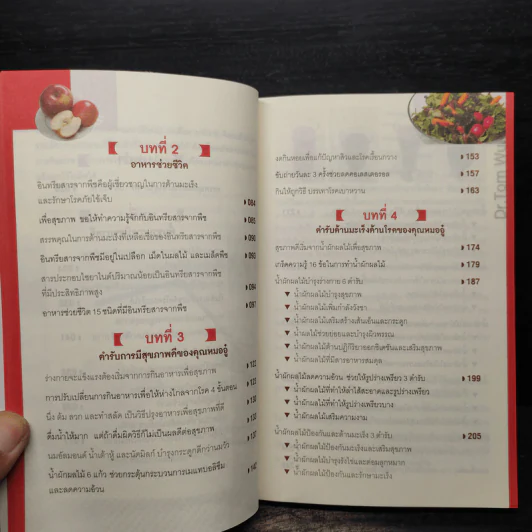 บทที่ 2
อาหารช่วยชีวิต
อินทรียสารจากพืชคือผู้เชี่ยวชาญในการต้านมะเร็ง
และรักษาโรคภัยไข้เจ็บ 084
เพื่อสุขภาพ ขอให้ทำความรู้จักกับอินทรียสารจากพืช 085
สรรพคุณในการต้านมะเร็งที่เหลือเชื่อของอินทรียสารจากพืช 090
อินทรียสารจากพืชซ่อนอยู่ในเปลือก เม็ดในผลไม้ และเมล็ดพืช 093
สารประกอบไซยาไนด์ปริมาณน้อยเป็นอินทรียสารจากพืช
ที่มีประสิทธิภาพสูง 094
อาหารช่วยชีวิต 15 ชนิดที่มีอินทรียสารจากพืช 097
บทที่ 3
ตำรับการมีสุขภาพดีของคุณหมออู๋
ร่างกายจะแข็งแรงต้องเริ่มจากการกินอาหารเพื่อสุขภาพ 122
การปรับเปลี่ยนการกินอาหารเพื่อให้ห่างไกลจากโรค 4 ขั้นตอน
นึ่ง ต้ม ลวก และทำสลัด เป็นวิธีปรุงอาหารเพื่อสุขภาพที่ดี
ดื่มน้ำให้มาก แต่ถ้าดื่มผิดวิธีก็ไม่เป็นผลดีต่อสุขภาพ
นมอัลมอนด์ น้ำเต้าหู้ และนัตมิลค์ บำรุงกระดูกดีกว่านมวัว
น้ำผักผลไม้ 6 แก้ว ช่วยกระตุ้นกระบวนการเมแทบอลิซึม
และลดความอ้วน
งดกินหอยเพื่อแก้ปัญหาสิวและโรคเรื้อนกวาง 153
ขับถ่ายวันละ 3 ครั้งช่วยลดคอเลสเตอรอล 157
กินให้ถูกวิธี บรรเทาโรคเบาหวาน 163
บทที่ 4
ตำรับต้านมะเร็งต้านโรคของคุณหมออู๋
สุขภาพดีเริ่มจากน้ำผักผลไม้เพื่อสุขภาพ 174
เกร็ดความรู้ 16 ข้อในการทำน้ำผักผลไม้ 179
น้ำผักผลไม้บำรุงร่างกาย 6 ตำรับ 187
▼ น้ำผักผลไม้บำรุงสุขภาพ
▼ น้ำผักผลไม้เพิ่มกำลังวังชา
▼ น้ำผักผลไม้เสริมสร้างเส้นเอ็นและกระดูก
▼ น้ำผักผลไม้ช่วยย่อยและบำรุงผิวพรรณ
▼ น้ำผักผลไม้ต้านปฏิกิริยาออกซิเดชันและเสริมสุขภาพ
▼ น้ำผักผลไม้ที่มีสารอาหารสมดุล
น้ำผักผลไม้ลดความอ้วน ช่วยให้รูปร่างเพรียว 3 ตำรับ 199
▼ น้ำผักผลไม้ที่ทำให้ลำไส้สะอาดและรูปร่างเพรียว
▼ น้ำผักผลไม้ที่ทำให้รูปร่างเพรียวบาง
▼ น้ำผักผลไม้เสริมความงาม
น้ำผักผลไม้ป้องกันและต้านมะเร็ง 3 ตำรับ 205
▼ น้ำผักผลไม้ป้องกันมะเร็งและเสริมสุขภาพ
▼ น้ำผักผลไม้บำรุงรังไข่และต่อมลูกหมาก
▼ น้ำผักผลไม้ป้องกันและรักษามะเร็ง
Dr.Tom Wu